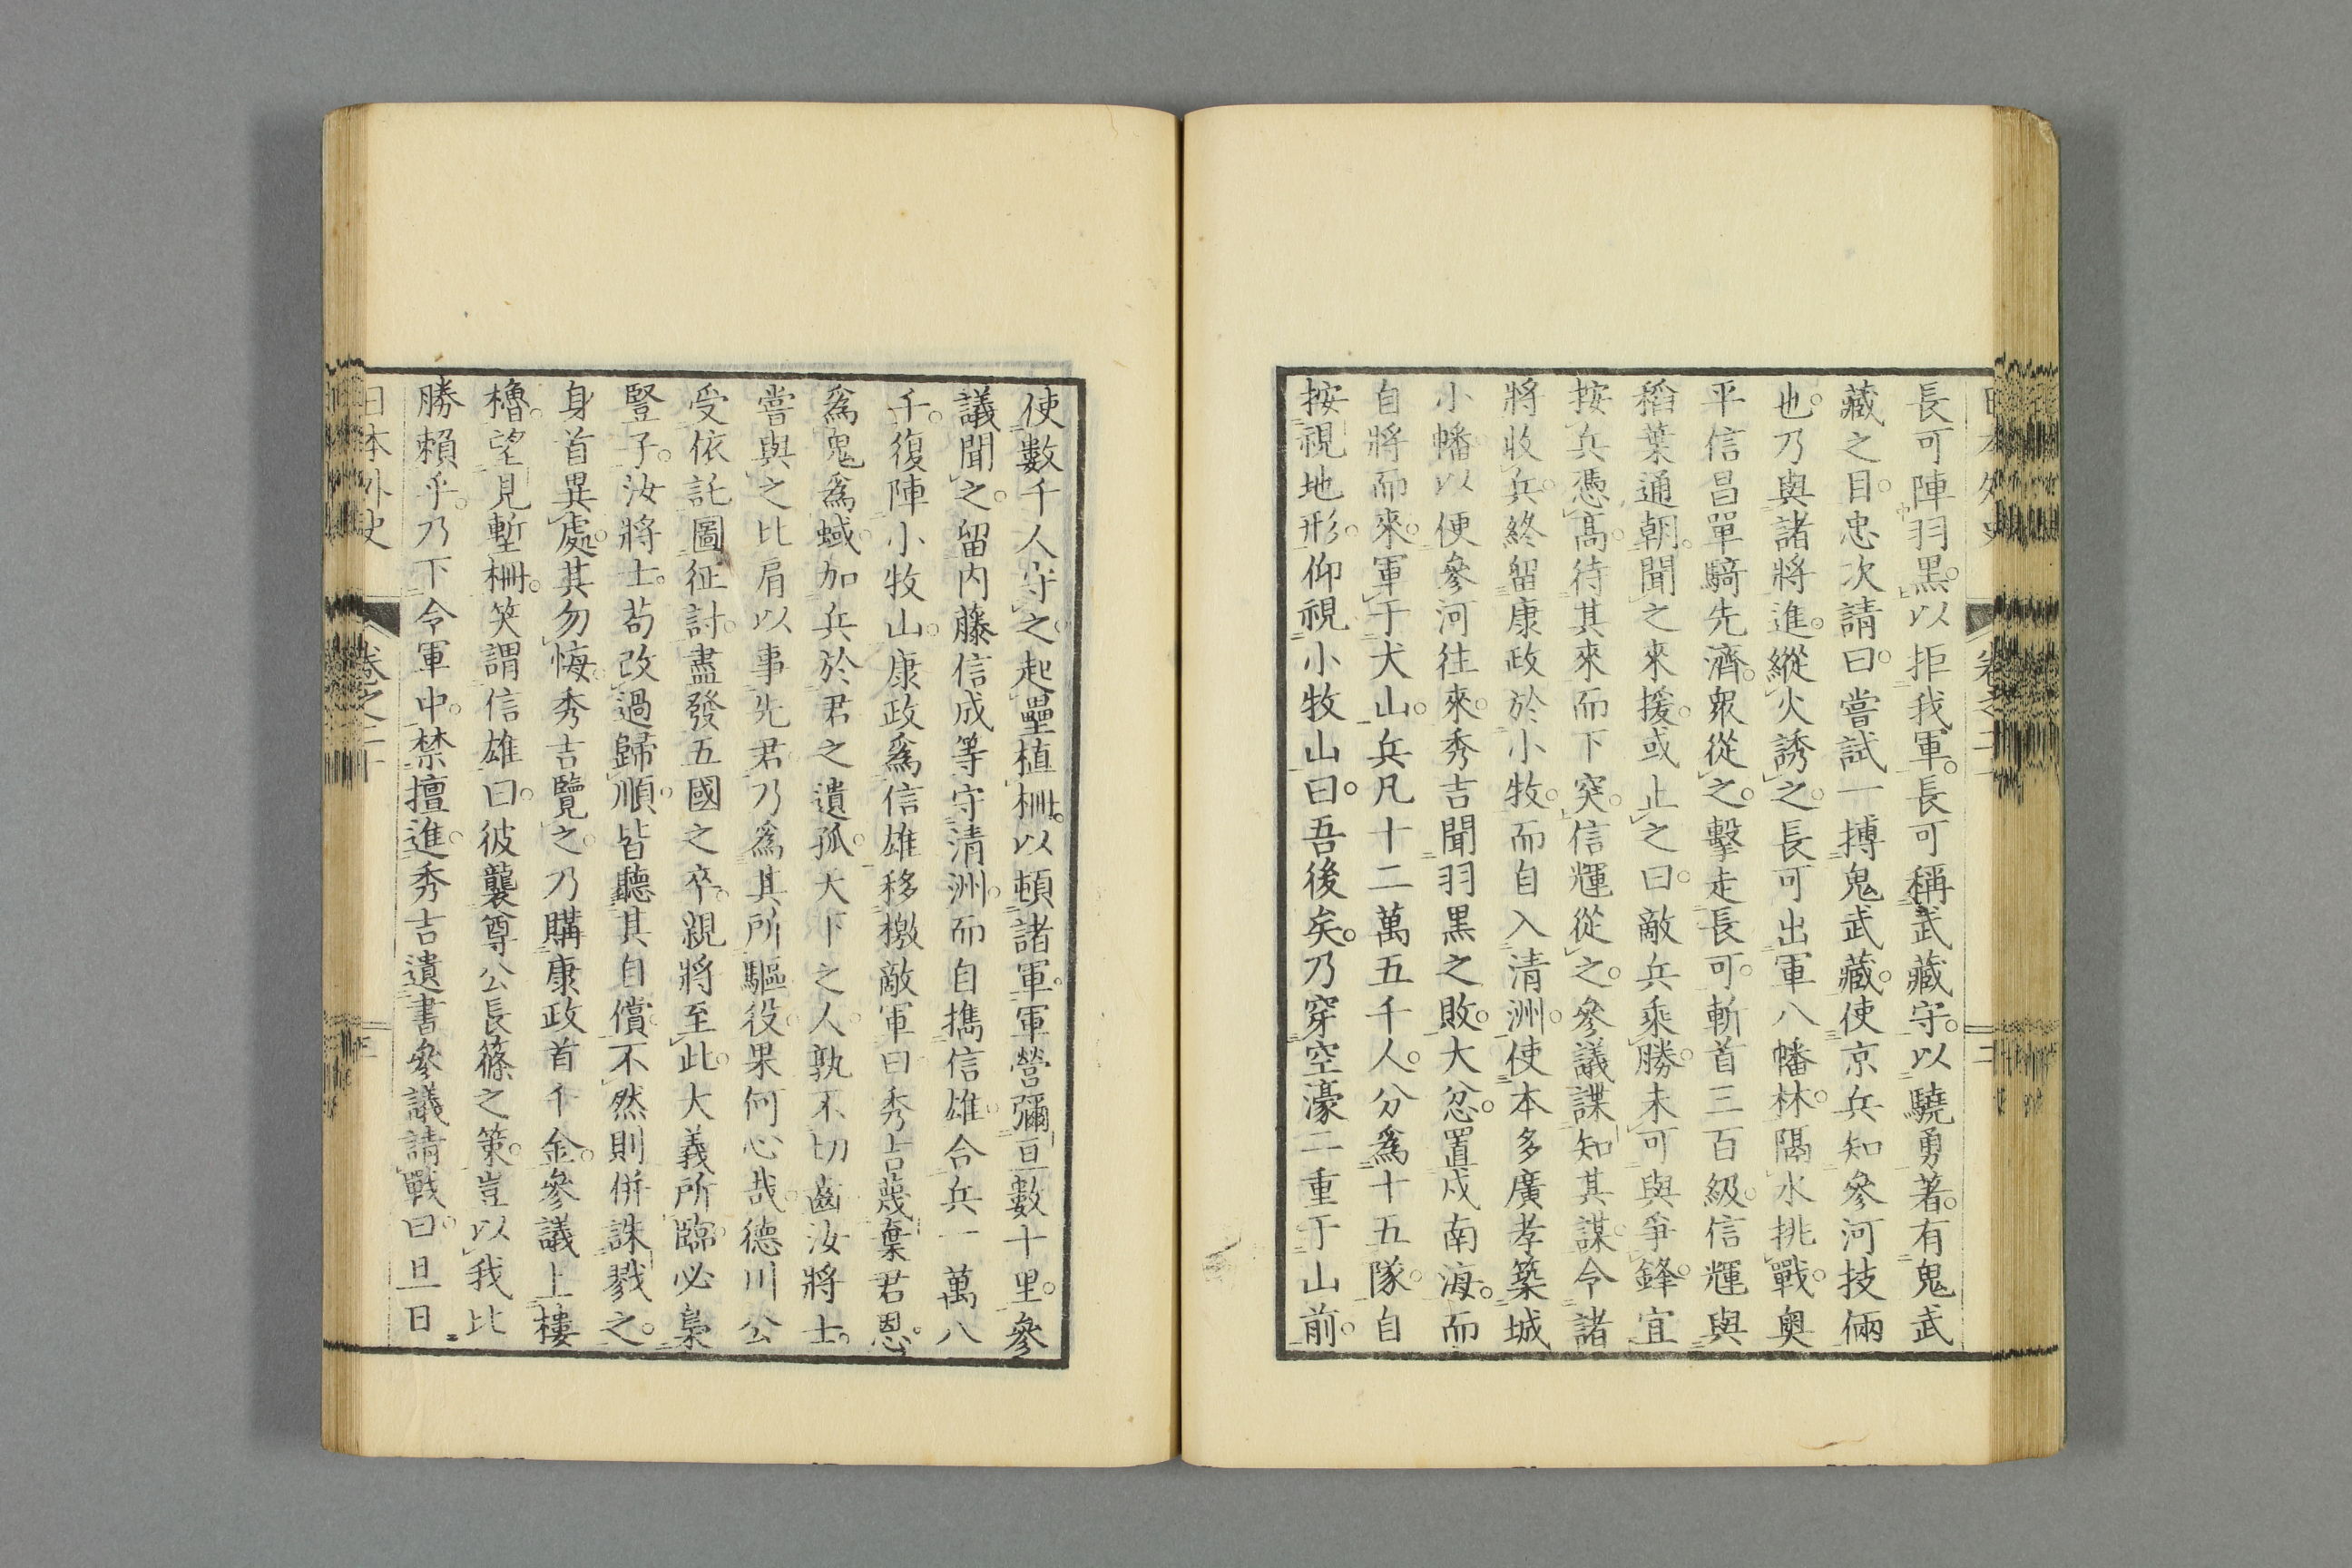 日本外史 卷之二十 二
長可陣羽黑。以拒我軍。長可稱武藏守。以驍勇著。有鬼武
藏之目。忠次請曰。嘗試一搏鬼武藏。使京兵知參河技倆
也。乃與諸將進。縱火誘之。長可出軍八幡林。隔水挑戰。奧
平信昌單騎先濟。衆從之。擊走長可。斬首三百級。信輝與
稻葉通朝。聞之來援。或止之曰。敵兵乘勝。未可與爭鋒。宜
按兵憑高。待其來而下突。信輝從之。參議諜知其謀。令諸
將收兵。終留康政於小牧。而自入清洲。使本多廣孝築城
小幡以便參河往來。秀吉聞羽黑之敗。大忿。置戍南海。而
自將而來。軍于犬山。兵凡十二萬五千人。分爲十五隊。自
按視地形。仰視小牧山曰。吾後矣。乃穿空濠二重于山前。
使數千人守之。起壘植柵。以頓諸軍。軍營彌亘數十里。參
議聞之。留内藤信成等守清洲。而自攜信雄合兵一萬八
千。復陣小牧山。康政爲信雄移檄敵軍曰秀吉蔑棄君恩。
爲鬼爲蜮。加兵於君之遺孤。大下之人。孰不切齒汝將士。
嘗與之比肩以事先君。乃爲其所驅役。果何心哉。德川公
受依託圖征討。盡發五國之卒。親將至此。大義所臨。必梟
豎子。汝將士。苟改過歸順。皆聽其自償。不然則併誅戮之。
身首異處。其勿悔。秀吉覽之。乃購康政首千金。參議上樓
櫓。望見塹柵。笑謂信雄曰。彼襲尊公長篠之策。豈以我比
勝賴乎。乃下令軍中。禁擅進。秀吉遺書參議請戰曰。旦日
日本外史 卷之二十 三